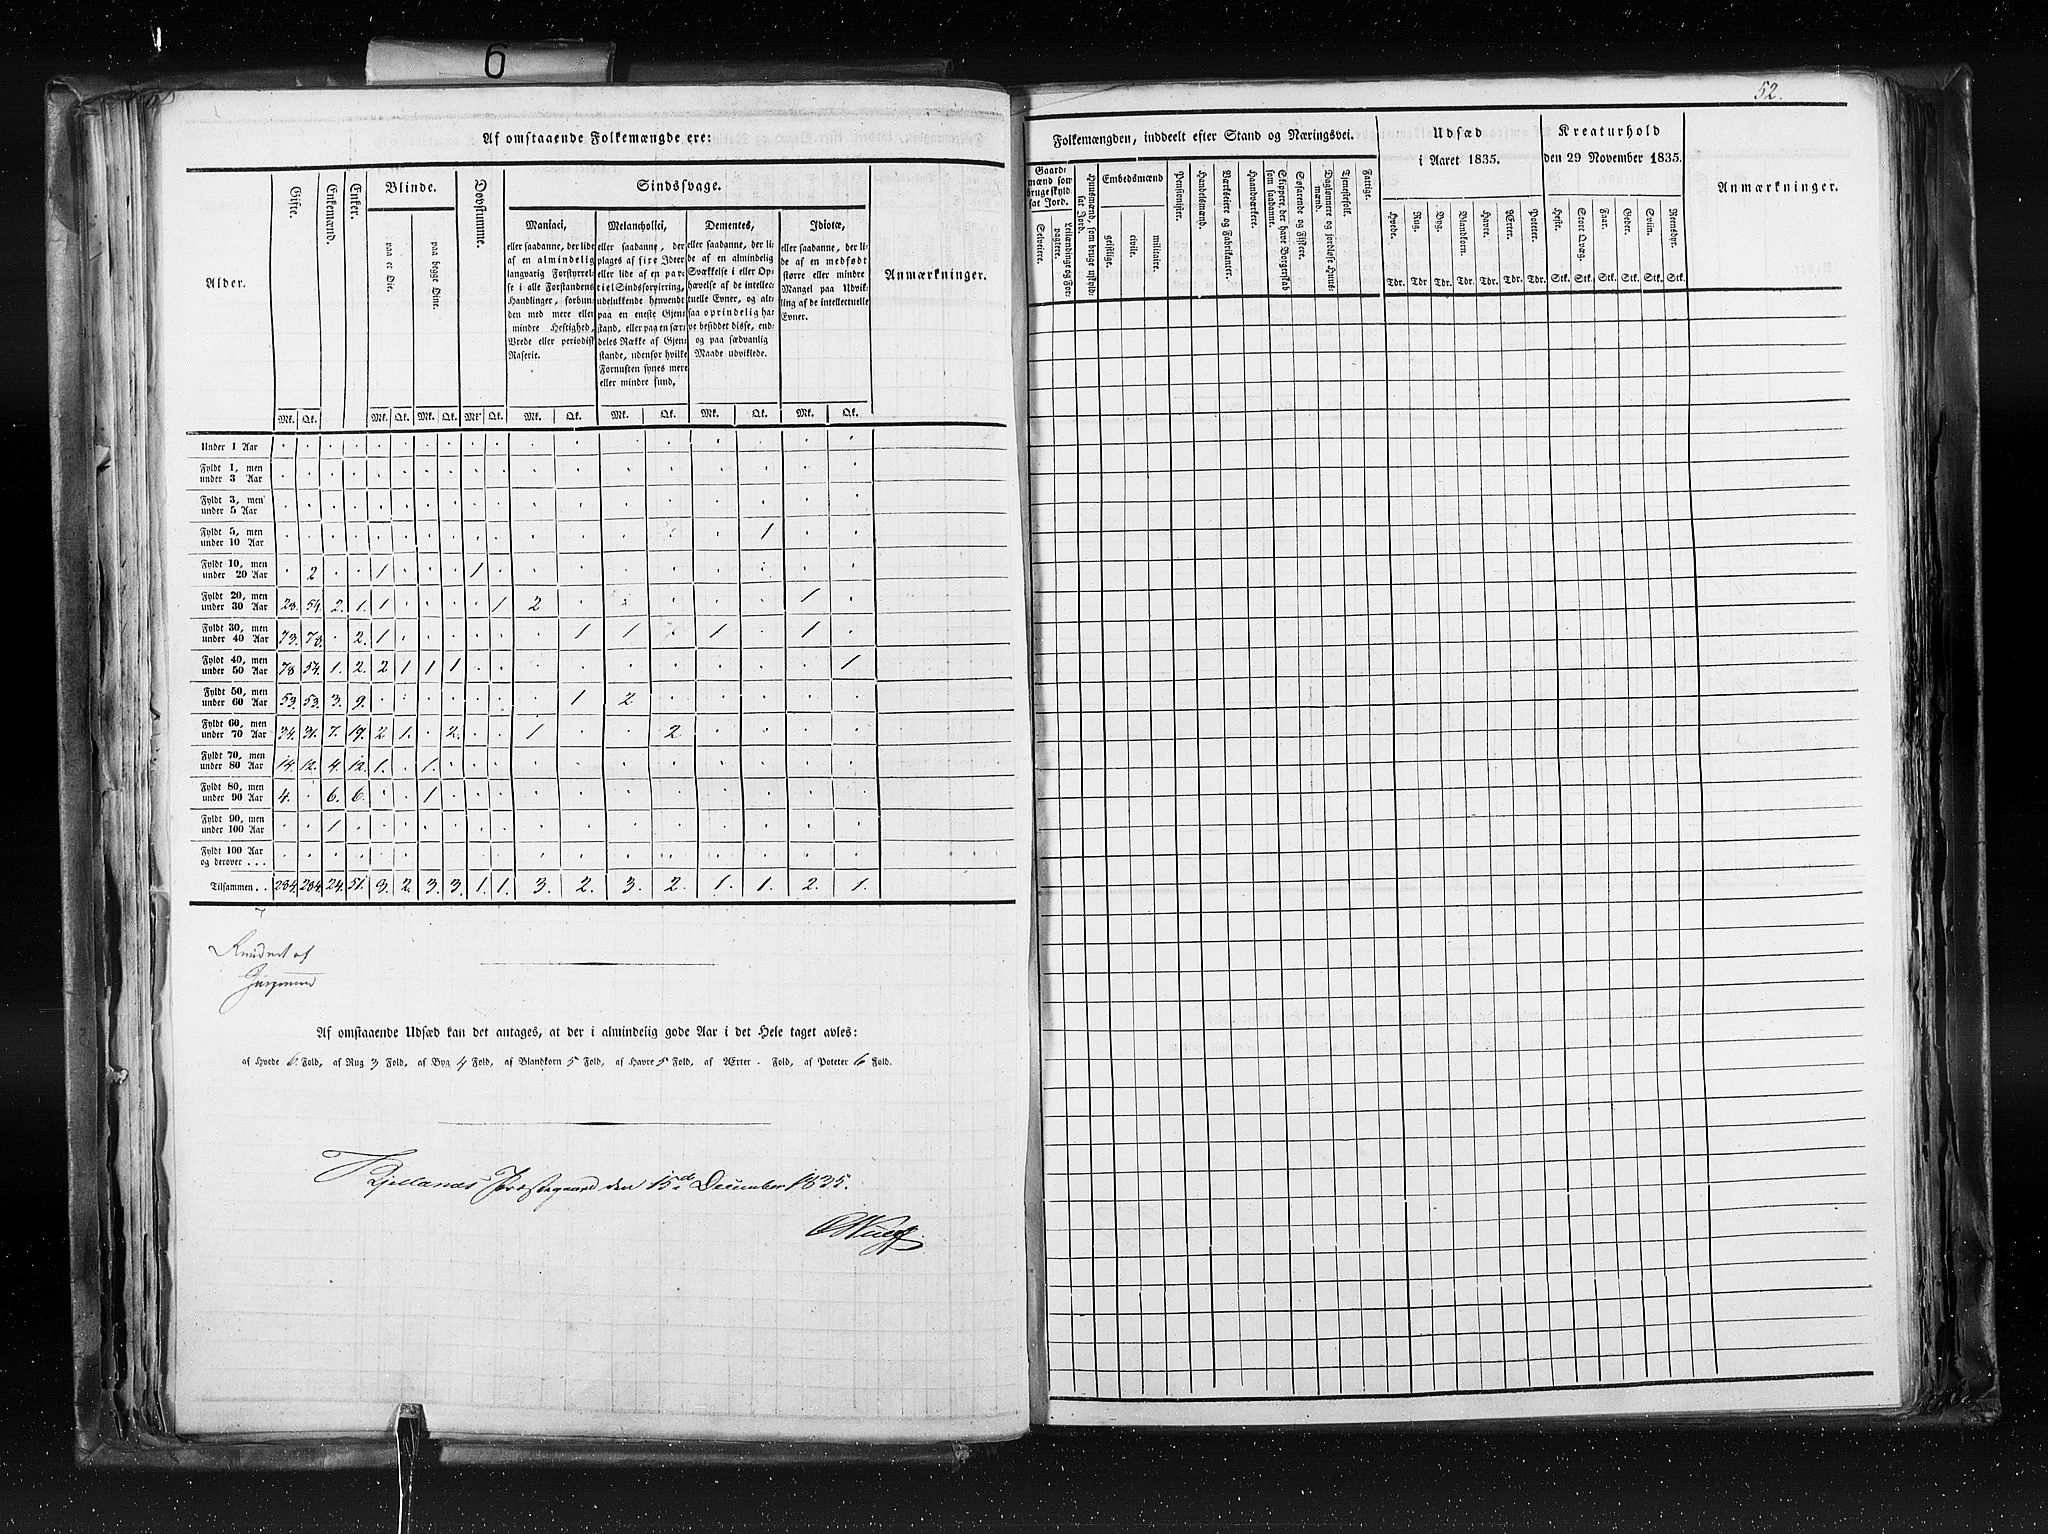 6
Af omstaaende Folkemængde ere:
Alder.
Gifte.
Enkemænd.
Enker.
Blinde.
paa et Øie.
paa begge Øine.
Døvstumme.
Sindssvage.
Maniaci,
eller saadanne, der lide
af en almindelig
langvarig Forstyrrel-
se i alle Forstandens
Handlinger, forbun-
den med mere eller
mindre Heftighed,
Vrede eller periodisk
Raserie.
Melancholici,
eller saadanne, der
plages af fixe Ideer
eller lide af en par-
tiel Sindsforvirring,
udelukkende henvendt
paa en eneste Gjen-
stand, eller paa en sær-
deles Række af Gjen-
stande, udenfor hvilke
Fornuften synes mere
eller mindre sund,
Dementes,
eller saadanne, der li-
de af en almindelig
Svækkelse i eller Op-
hævelse af de intellec-
tuelle Evner, og alt-
saa oprindelig ha-
ve besiddet disse, end-
og paa sædvanlig
Maade udviklede.
Idiotæ,
eller saadanne, der li-
de af en medfødt
større eller mindre
Mangel paa Udvik-
ling af de intellectuelle
Evner.
Anmærkninger.
Mk. Qk. Mk. Qk. Mk. Qk. Mk. Qk. Mk. Qk. Mk. Qk. Mk. Qk. Mk. Qk.
Under 1 Aar . . . . . . . . . . . . . . . . . .
Fyldt 1, men
under 3 Aar . . . . . . . . . . . . . . . . . .
Fyldt 3, men
under 5 Aar . . . . . . . . . . . . . . . . . .
Fyldt 5, men
under 10 Aar . . . . . . . . . . . . . . . 1 . .
Fyldt 10, men
under 20 Aar . 2 . . 1 . . . 1 . . . . . . . . .
Fyldt 20, men
under 30 Aar 28. 54. 2. 1. 1 . . . . 1 2 . . . . . 1 .
Fyldt 30, men
under 40 Aar 73. 78. . 2. 1 . . . . . . 1 1 . 1 . 1 .
Fyldt 40, men
under 50 Aar 78 54. 1. 2. 2 1 1 1 . . . . . . . . . 1
Fyldt 50, men
under 60 Aar 53. 53. 3. 9. . . . . . . . 1 2 . . . . .
Fyldt 60, men
under 70 Aar 34. 31. 7. 19. 2 1. . 2. . . 1 . . 2 . . . .
Fyldt 70, men
under 80 Aar 14. 12. 4. 12. 1. . 1. . . . . . . . . . . .
Fyldt 80, men
under 90 Aar 4. . 6. 6. . . 1 . . . . . . . . . . .
Fyldt 90, men
under 100 Aar . . 1 . . . . . . . . . . . . . . .
Fyldt 100 Aar
og derover . . . . . . . . . . . . . . . . . . . . .
Tilsammen . . 284. 284. 24. 51. 3. 2. 3. 3. 1. 1. 3. 2. 3. 2. 1. 1. 2. 1.
af
Af omstaaende Udsæd kan det antages, at der i almindelig gode Aar i det Hele taget avles:
af Hvede 6 Fold, af Rug 3 Fold, af Byg 4 Fold, af Blandkorn 5 Fold, af Havre 5 Fold, af Ærter . Fold, af Poteter 6 Fold.
Kjellands Præstegaard den 15de December 1835.
52.
Folkemængden, inddeelt efter Stand og Næringsvei.
Udsæd
i Aaret 1835.
Kreaturhold
den 29 November 1835.
Anmærkninger.
Gaard-
mænd som
bruge skyld-
sat Jord.
Selveiere.
Leilændinge og For-
pagtere.
Huusmænd, som bruge uskyld-
sat Jord.
Embedsmænd
geistlige.
civile.
militaire.
Pensionister.
Handelsmænd.
Værkseiere og Fabrikanter.
Haandværkere.
Skippere, der have Borgerskab
som saadanne.
Søfarende og Fiskere.
Dagløn­nere og jordløse Huus-
mænd.
Tjenestefolk.
Fattige.
Hvede. Rug. Byg. Blandkorn. Havre. Ærter. Poteter.
Heste. Stort Qvæg. Faar. Geder. Sviin. Reensdyr.
Tdr. Tdr Tdr. Tdr. Tdr. Tdr. Tdr. Stk. Stk. Stk. Stk. Stk. Stk.